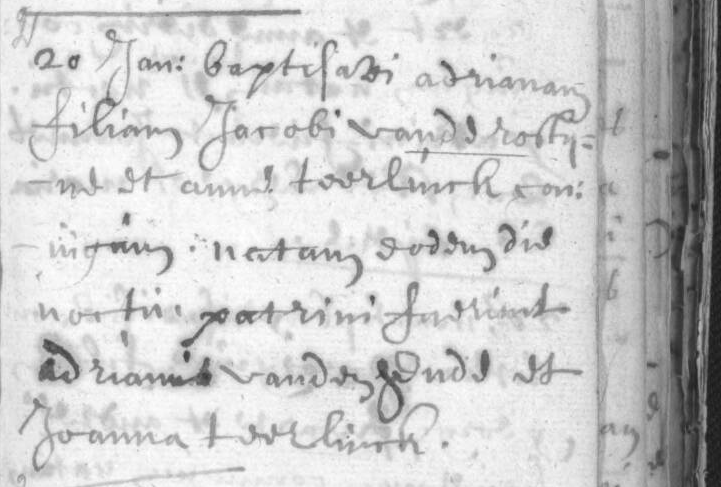 20 Jan: baptisavi adrianam
filiam Jacobi vande rosty=
-ne et annæ teerlinck con:
-iugum. natam eodem die
noctu. patrini fuerunt
adrianus vanden Eude et
Joanna teerlinck.